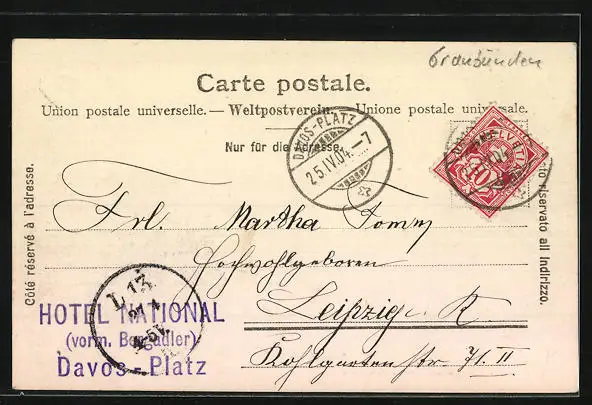 Graubünden
Carte postale.
Union postale universelle. — Weltpostverein. — Unione postale universale.
Nur für die Adresse.
DAVOS-PLATZ
25.IV.04.-7
HELVETIA
10
Côté réservé à l'adresse.
Lato riservato all indirizzo.
Frl. Martha Tomm
Hochwohlgeboren
Leipzig - R.
Kohlgartenstr. 71. II
L 13
HOTEL NATIONAL
(vorm. Bergadler)
Davos-Platz